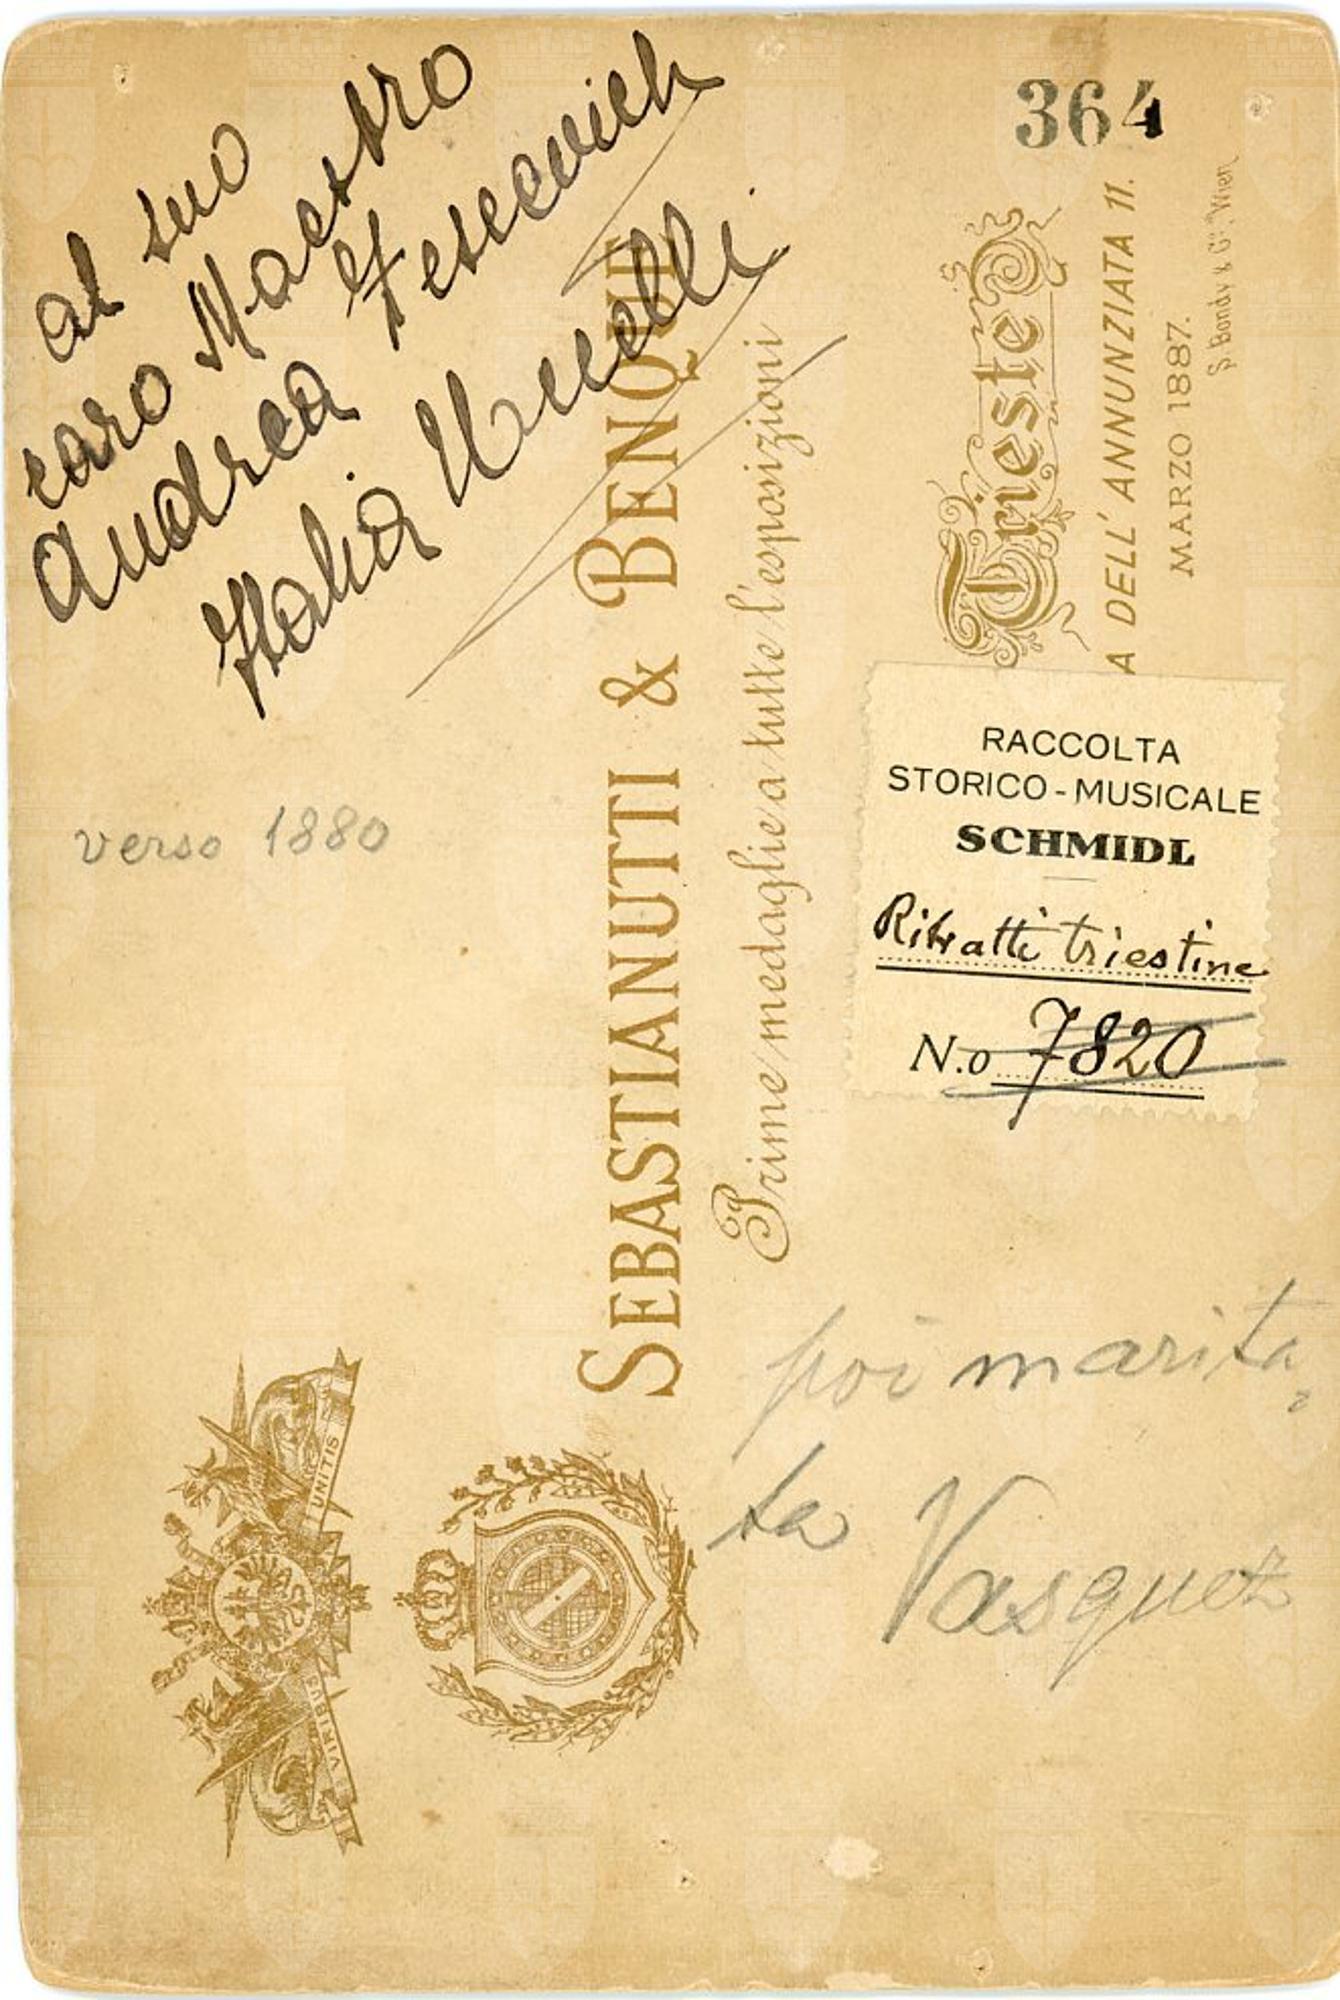 al suo
caro Maestro
Andrea
Italia
364
SEBASTIANUTTI & BENQUE
Prime medaglie a tutte l'esposizioni
Trieste
A DELL' ANNUNZIATA 11.
MARZO 1887.
S. Bondy & Co. Wien
verso 1880
RACCOLTA
STORICO-MUSICALE
SCHMIDL
Ritratti triestine
N.o 7820
poi marita,
ta Vasquez
VIRIBUS
UNITIS